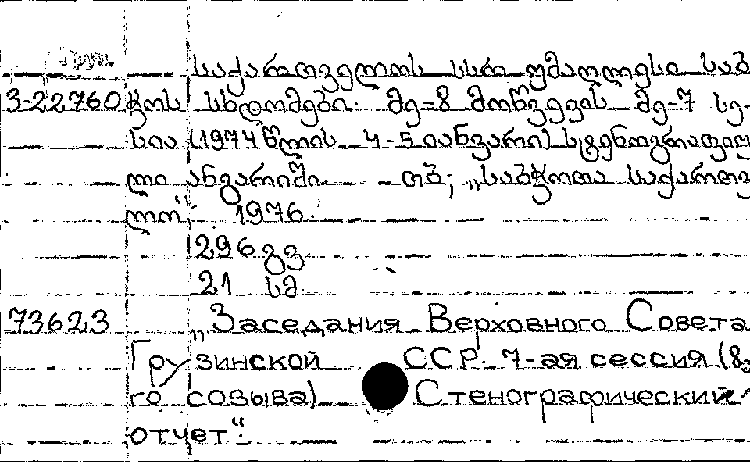 Груз.
საქართველოს სსრ უმაღლესი საბ
3-22760 ჭოს სხდომები. მე-8 მოწვევის მე-7 სე-
სია (1974 წლის 4-5 იანვარი) სტენოგრაფიუ
ლი ანგარიში. - თბ; „საბჭოთა საქართვე
ლო“. 1976.
296 გვ
21 სმ
73623 „Заседания Верховного Совета
Грузинской ССР. 7-ая сессия (8-
го созыва) Стенографический
отчет“.